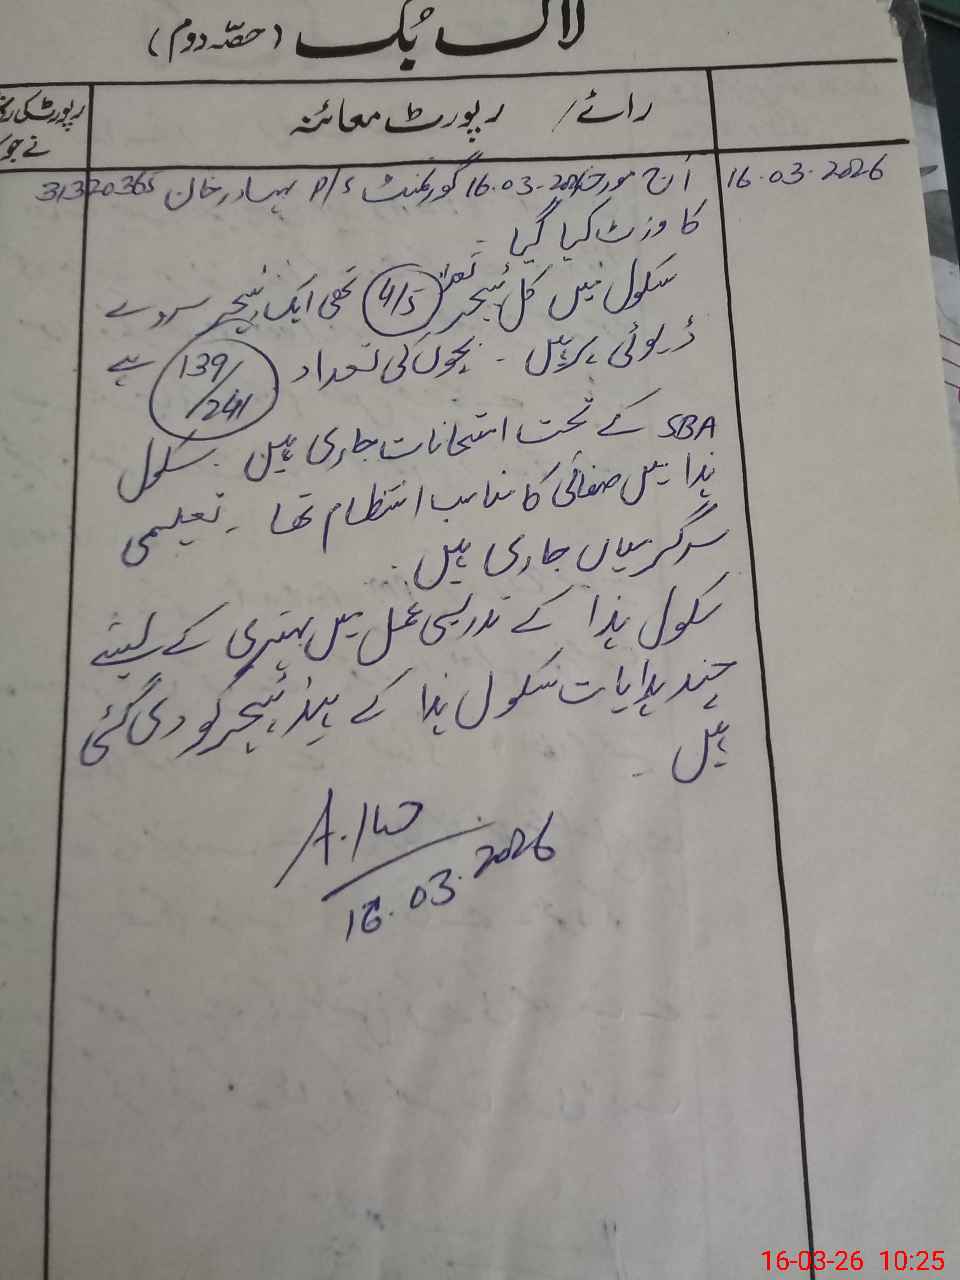 لاگ بُک (حصّہ دوم)
رائے / رپورٹ معائنہ
رپورٹ کی
نے جو
16.03.2026
آج مورخہ 16.03.2026 گورنمنٹ P/S بہادر خان 31320365
کا وزٹ کیا گیا۔
سکول میں کل ٹیچر تعداد 4/5 تھی ایک ٹیچر سروے
ڈیوٹی پر ہیں۔ بچوں کی تعداد 139/241 ہے
SBA کے تحت امتحانات جاری ہیں۔ سکول
ہذا میں صفائی کا مناسب انتظام تھا۔ تعلیمی
سرگرمیاں جاری ہیں۔
سکول ہذا کے تدریسی عمل میں بہتری کے لیئے
چند ہدایات سکول ہذا کے ہیڈ ٹیچر کو دی گئی
ہیں۔
16.03.2026
16-03-26 10:25